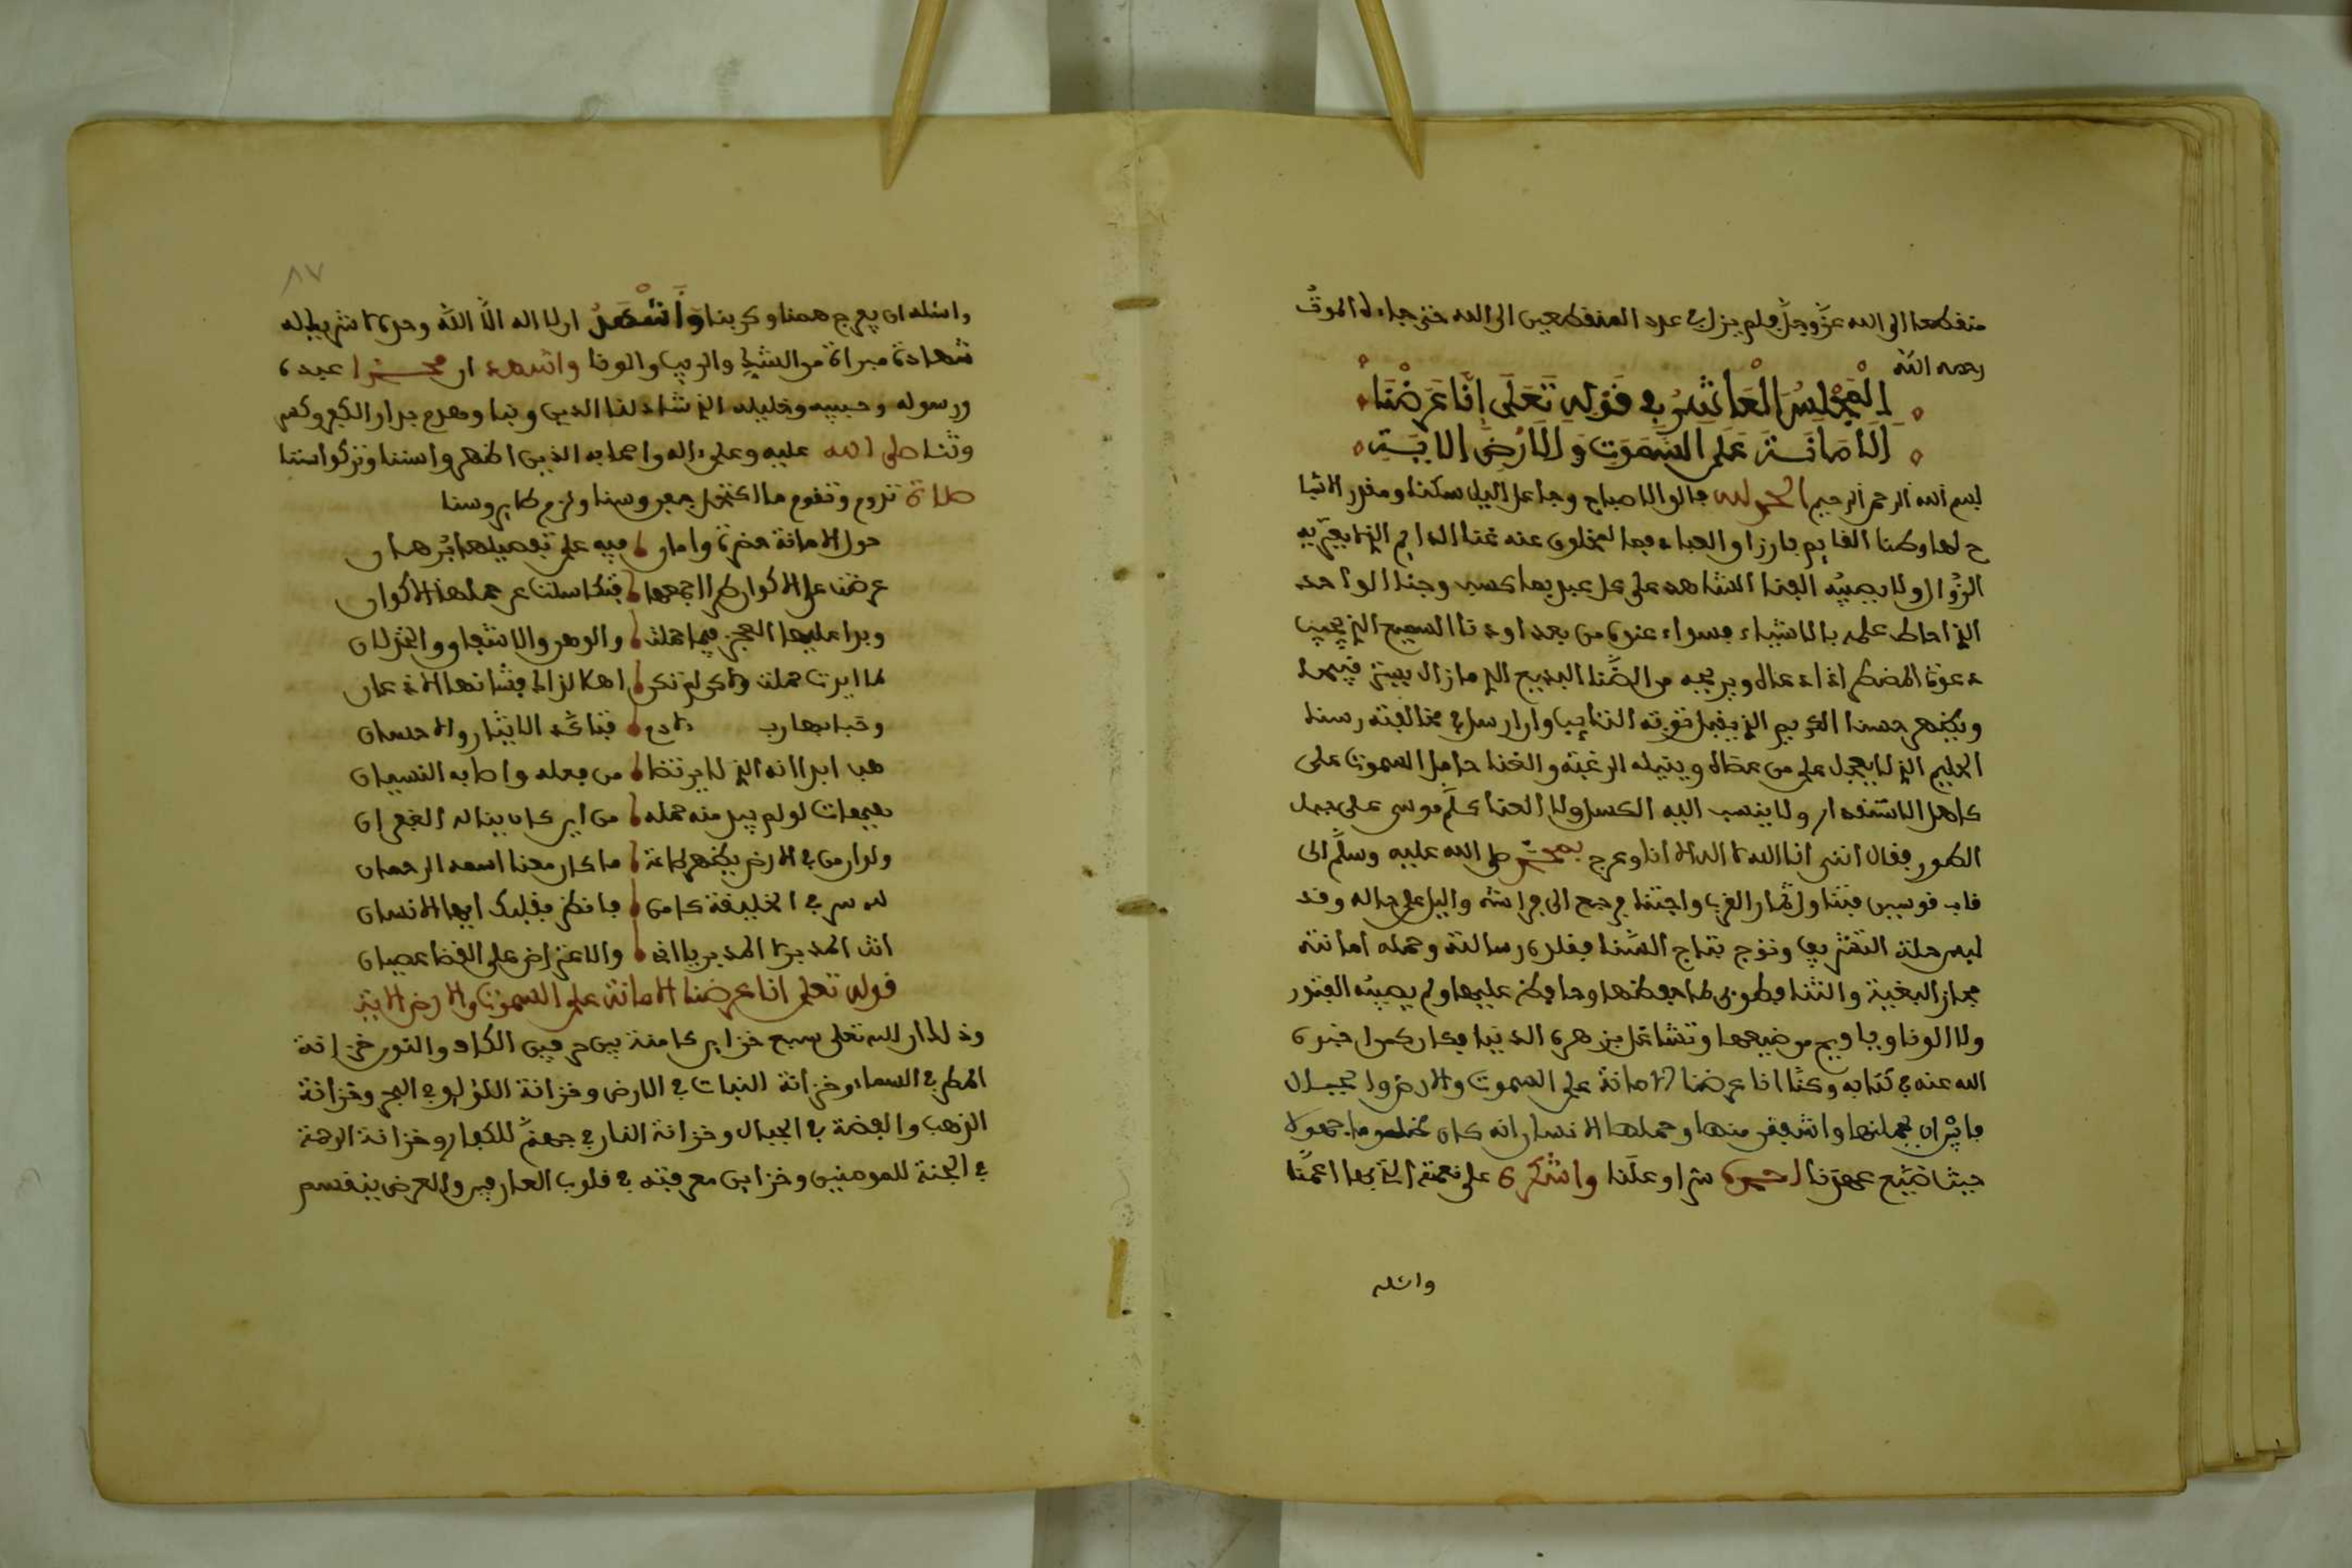 منقطعا الى الله عز وجل فلم يزل في عدد المنقطعين الى الله حتى جاءه الموت
رحمه الله
المجلس العاشر في قوله تعلى إنا عرضنا
الأمانة على السموت والارض الاية
بسم الله الرحمن الرحيم الحمد لله فالق الاصباح وجاعل اليل سكنا ومقدر الاشيا
الزوال ولا يصيبه الفنا الشاهد على كل عبد بما كسب وجنا الواحد
الذي احاط علمه بالاشياء فسواء عنده من بعد او دنا السميع الذي يجيب
دعوة المضطر اذا دعاه ويرحمه من الضنا البديع الذي ما زال يبدي قبيحا
ويظهر حسنا الكريم الذي يقبل توبة التايب وان ارسل في مخالفته رسنا
الحليم الذي لا يعجل على من عصاه وينيله الرغبة والغنا حامل السموت على
كاهل الاقتدار ولا ينسب اليه الكسل ولا العنا كلم موسى على جبل
الطور فقال انني انا الله لا اله الا انا وعرج بمحمد صلى الله عليه وسلم الى
قاب قوسين فتناول ثمار القرب واجتنا فرجع الى فراشه واليل على حاله وقد
لبس حلة التشريف وتوج بتاج السنا فقلده رسالته وحمله امانته
فحاز البغية والثنا فطوبى لمن حفظها وحافظ عليها ولم يصبه الفتور
ولا الونا ويا ويح من ضيعها وتشاغل بزهرة الدنيا فكان كمن اخبر
الله عنه في كتابه وكنا انا عرضنا الامانة على السموت والارض والجبال
فابين ان يحملنها واشفقن منها وحملها الانسان انه كان ظلوما جهولا
حيث ضيع عهدنا احمده سرا وعلنا واشكره على نعمه التي بها اعمنا
واسئله
٨٧
واسئله ان يفرج همنا وكربنا وأشهد ان لا اله الا الله وحده لا شريك له
شهادة مبراة من الشك والريب والونا واشهد ان محمدا عبده
ورسوله وحبيبه وخليله الذي شاد لنا الدين وبنا وهدم جدار الكفر وكسر
وثنا صلى الله عليه وعلى ءاله واصحابه الذين اظهروا سننا وتركوا سننا
صلاة تدوم وتقوم ما اكتحل جفن وسنا ولزم طاير وسنا
حول الامانة حضرة وامان فيه على تفصيلها برهان
عرضت على الاكوان طرا اجمعها فتكاسلت عن حملها الاكوان
وبدا عليها العجز فيما حملت والوهن والاشفاق والخذلان
لما ابت حملت ولاكن لم تكن اهلا لذاك فشانها الاذعان
وخبا بها رب قباكه الايثار والاحسان
هب ابدا انه الذي لا يرتضا من فعله واصابه النسيان
هيهات لو لم يبد منه حمله من اين كان يناله الغفران
ولو ان من في الارض يظهر طاعة ما كان معنا اسمه الرحمان
لله سر في الخليفة كامن فانظر بقلبك ايها الانسان
انت المدبر لا المدبر يا اخي والاعتراض على القضا عصيان
قوله تعلى انا عرضنا الامانة على السموت والارض الاية
وذلك ان لله تعلى سبع خزاين كامنة بين حرفين الكاف والنون خزانة
المطر في السماء وخزانة النبات في الارض وخزانة اللؤلو في البحر وخزانة
الذهب والفضة في الجبال وخزانة النار في جهنم للكفار وخزانة الرحمة
في الجنة للمومنين وخزاين معرفته في قلوب العارفين والعرض ينقسم